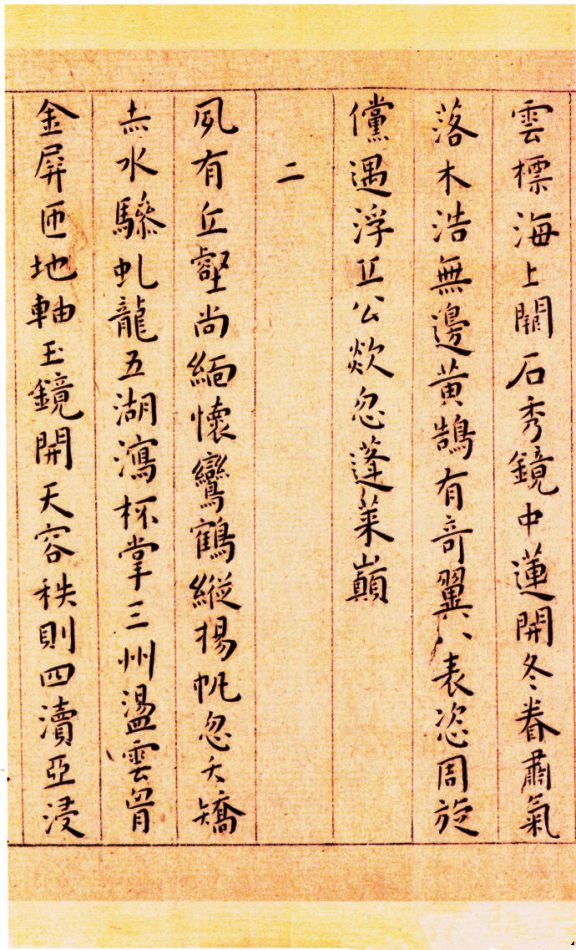 雲標海上關石秀鏡中蓮開冬眷肅氣
落木浩無邊黃鵠有奇翼八表恣周旋
儻遇浮丘公欻忽蓬萊巔
二
夙有丘壑尚緬懷鸞鶴縱揚帆忽夭矯
赤水驂虬龍五湖瀉杯掌三州盪雲胷
金屏匝地軸玉鏡開天容秩則四瀆亞浸